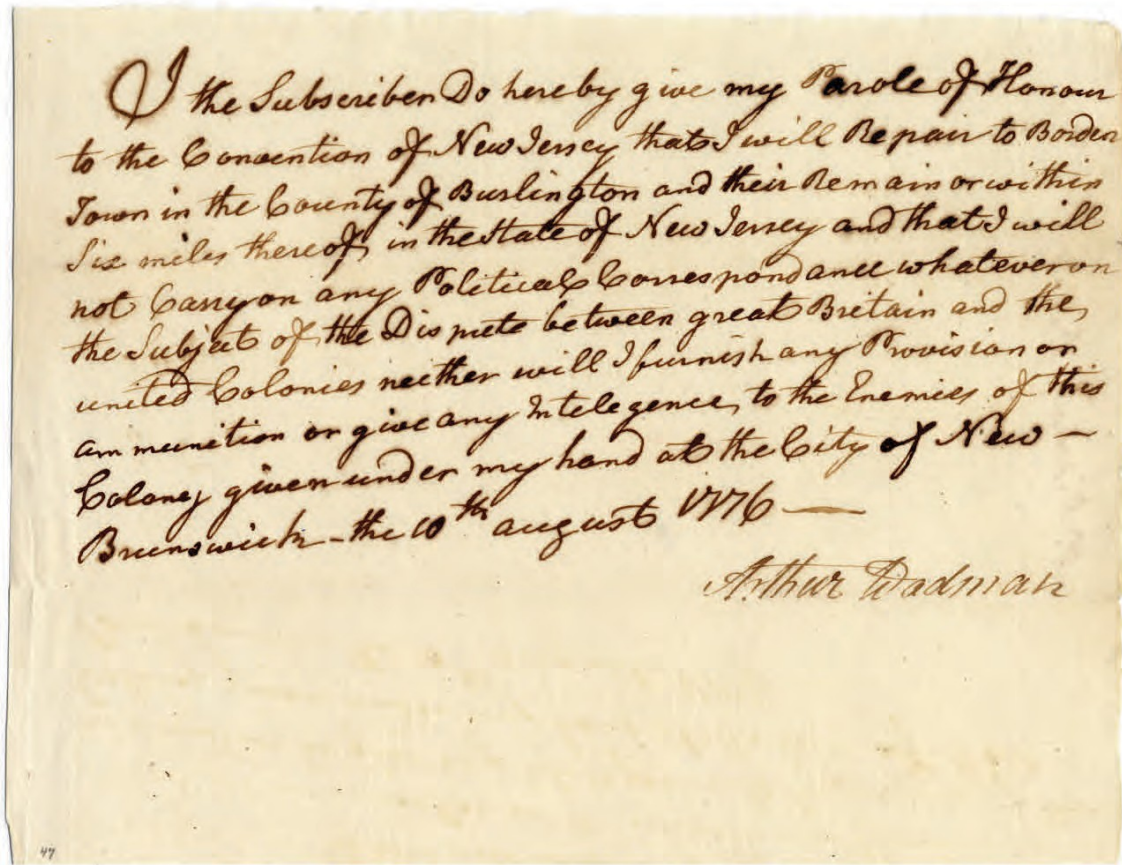 I the Subscriber Do hereby give my Parole of Honour
to the Convention of New Jersey that I will Repair to Borden
Town in the County of Burlington and their Remain or within
Six miles thereof, in the State of New Jersey and that I will
not Carry on any Political Correspondance whatever on
the Subject of the Dispute between great Britain and the
united Colonies neither will I furnish any Provision or
ammunition or give any Intelegence, to the Enemies of this
Colony given under my hand at the City of New —
Brunswick - the 10th august 1776 —
Arthur Wadman
47